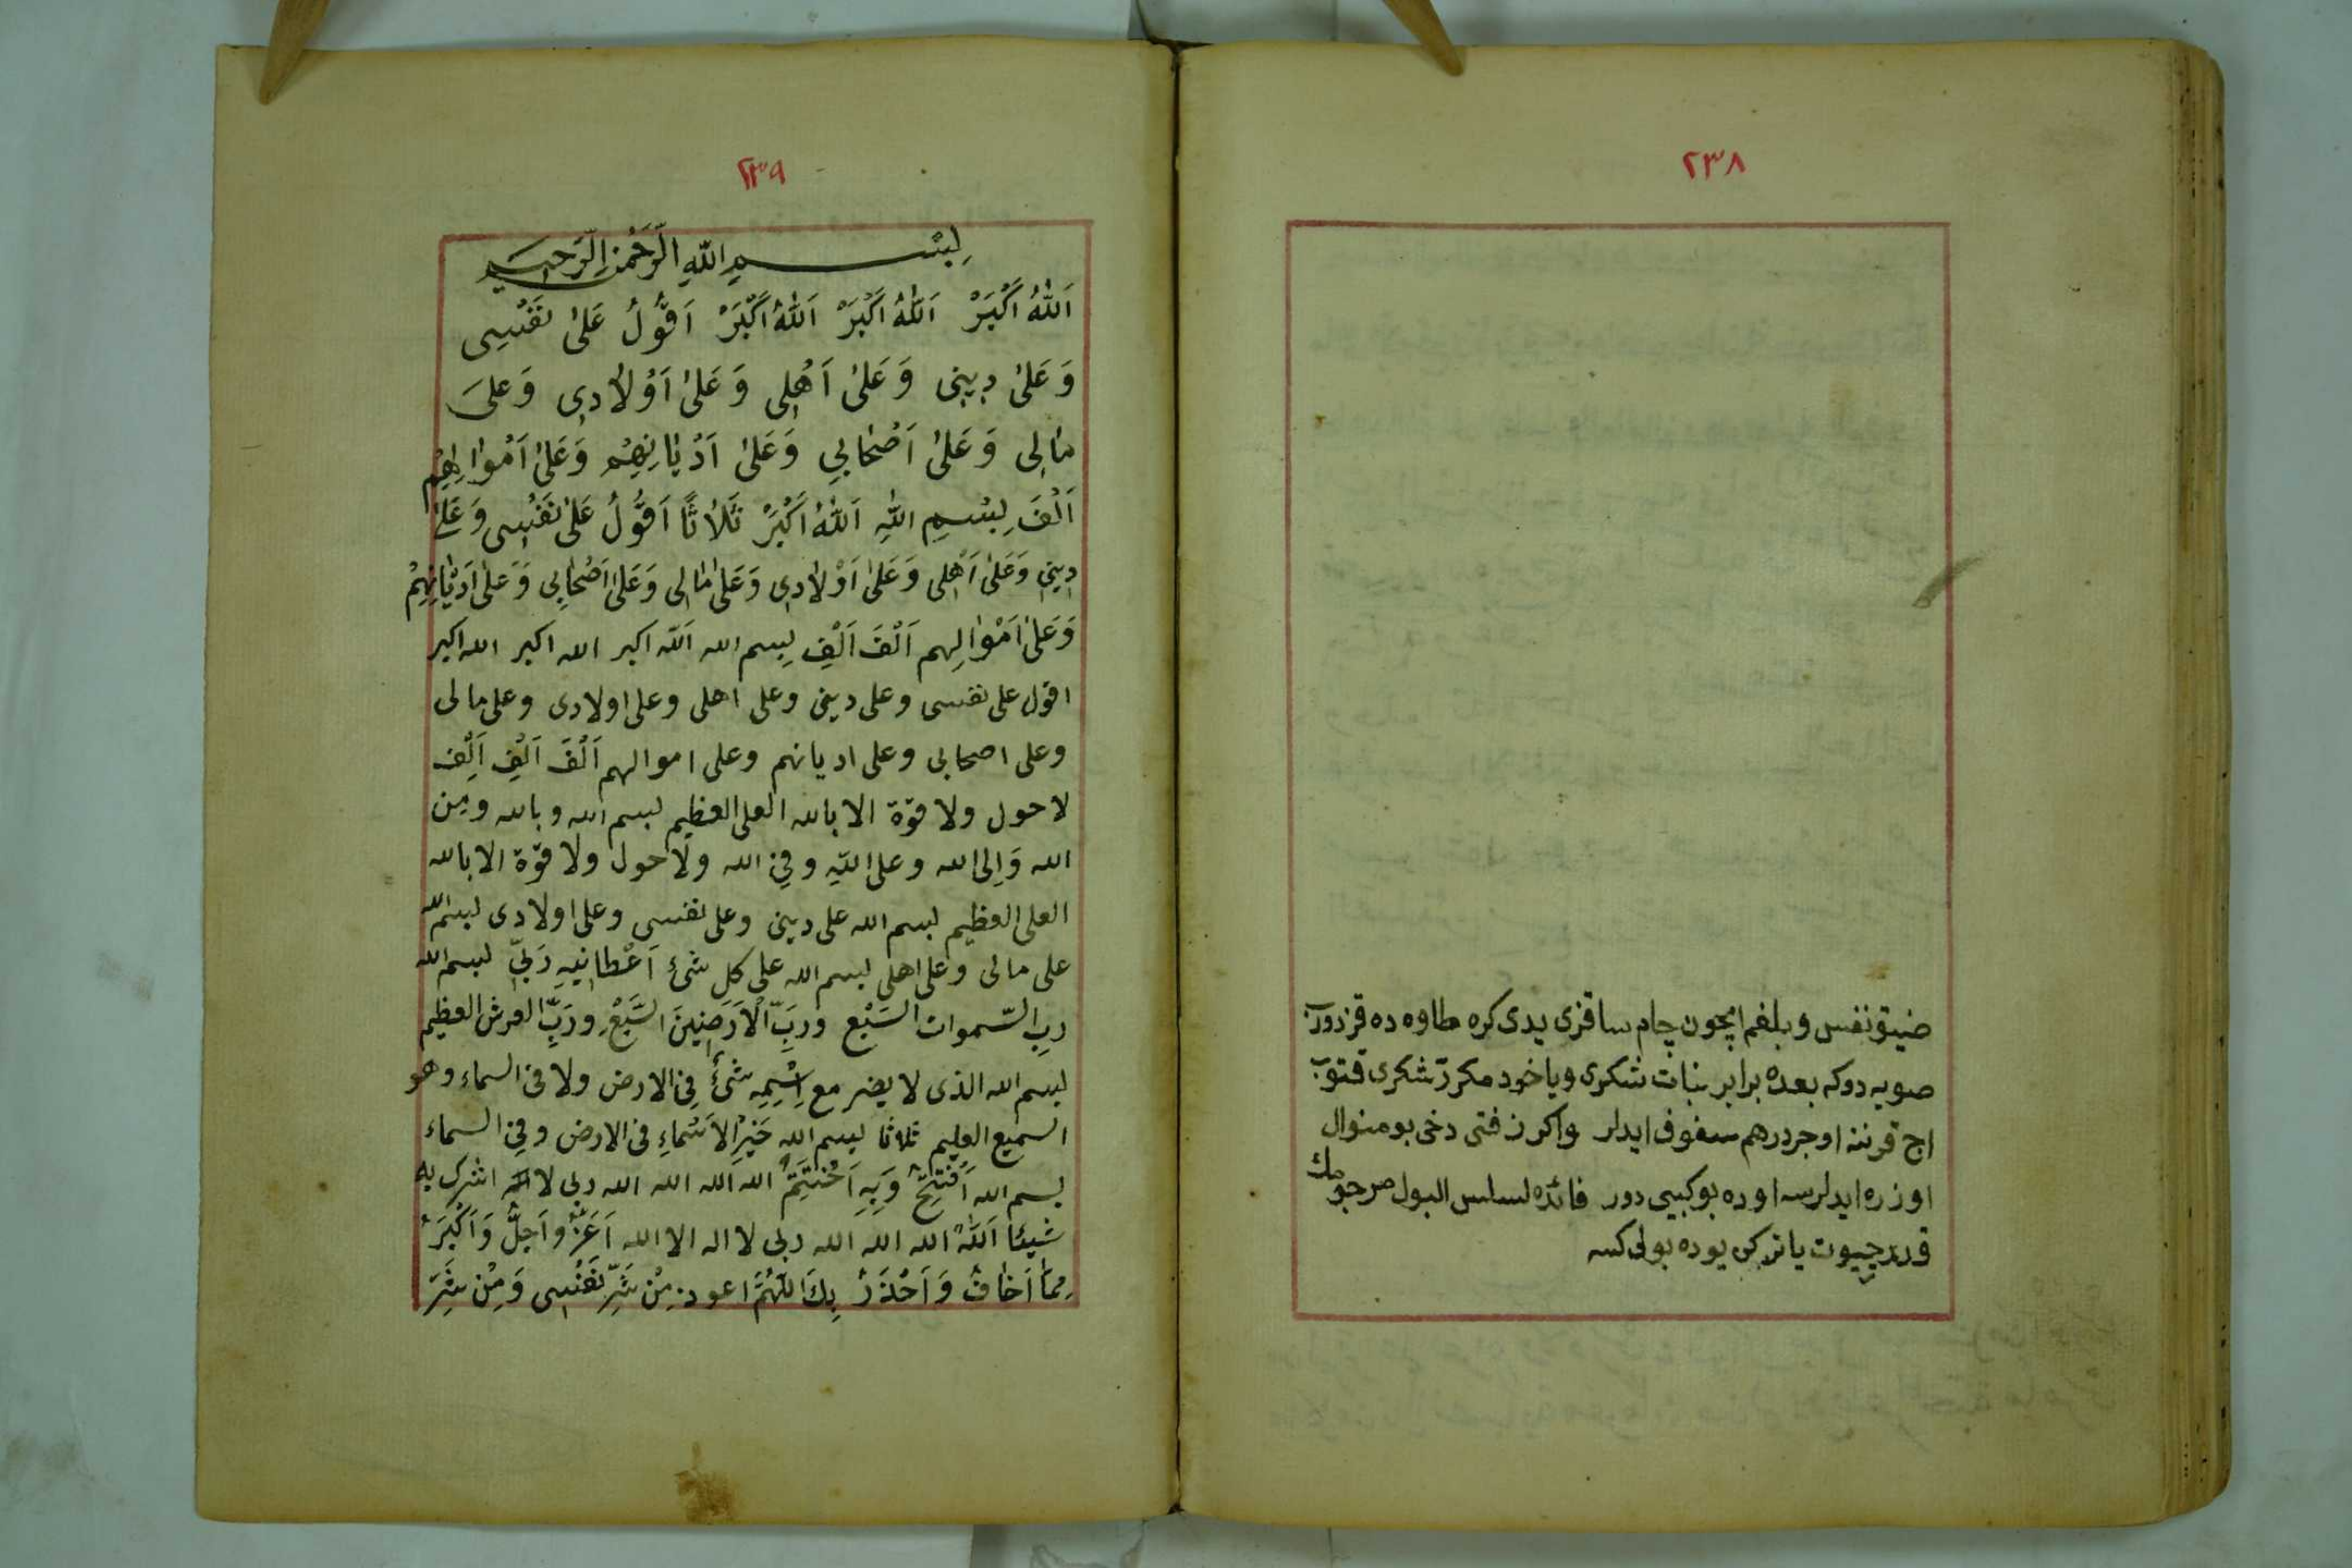 ٢٣٨
ضيق نفس و بلغم ايچون چام ساقزى يدى كره طاوه ده قزدروب
صويه دوكه بعده برابر نبات شكرى وياخود مكرر شكرى قتوب
اوجر درهم سفوف ايدلر واكر زفتى دخى بو منوال
اوزره ايدلرسه او ده بو كبيى دور فائده لسلس البول مرجومك
قوريدچيوت ياتركن يوده بولى كسه
٢٣٩
بِسْمِ اللّٰهِ الرَّحْمٰنِ الرَّحِيمِ
اَللّٰهُ اَكْبَرْ اَللّٰهُ اَكْبَرْ اَللّٰهُ اَكْبَرْ اَقُولُ عَلىٰ نَفْسِى
وَعَلىٰ دِينِى وَعَلىٰ اَهْلِى وَعَلىٰ اَوْلاٰدِى وَعَلىَ
مٰالِى وَعَلىٰ اَصْحَابِي وَعَلىٰ اَدْيَانِهِمْ وَعَلىٰ اَمْوَالِهِمْ
اَلْفَ بِسْمِ اللّٰهِ اَللّٰهُ اَكْبَرْ ثَلاٰثًا اَقُولُ عَلىٰ نَفْسِى وَعَلىٰ
دِينِى وَعَلىٰ اَهْلِى وَعَلىٰ اَوْلاٰدِى وَعَلىٰ مٰالِى وَعَلىٰ اَصْحَابِى وَعَلىٰ اَدْيَانِهِمْ
وَعَلىٰ اَمْوٰالِهم اَلْفَ اَلْفِ بِسم الله اَلله اكبر الله اكبر الله اكبر
اقول على نفسى وعلى دينى وعلى اهلى وعلى اولادى وعلى مالى
وعلى اصحابى وعلى اديانهم وعلى اموالهم اَلْفَ اَلْفِ اَلْفِ
لا حول ولا قوّة الا بالله العلى العظيم بسم الله وبالله ومِن
الله وَاِلى الله وعلى اللّٰهِ وفِى الله ولَا حول ولا قوّة الا بالله
العلى العظيم بسم الله على دينى وعلى نفسى وعلى اولادى بسم الله
على مالى وعلى اهلى بسم الله على كل شئ اَعْطانِيهِ رَبِّى بسم الله
ربِ السّموات السَبْع وربِّ الْاَرَضِينَ السَّبْعِ وَرَبِّ العرش العظيم
بسم الله الذى لا يضر مع اِسْمِهِ شَئٌ فِى الارض ولا فى السماء وهو
السميع العليم ثلاثا بسم الله خَيْرِ الاَسْمَاءِ فى الارض وفِى السماء
بسم الله اَفْتَتِحُ وَبِهِ اَخْتَتِمُ الله الله الله الله ربى لا اشرك به
شيئا اَللّٰهُ الله الله الله ربى لا اله الا الله اَعَزُّ وَاَجَلُّ وَاَكْبَرُ
مِمَّا اَخٰافُ وَاَحْذَرُ بِكَ اللّٰهُمَّ اعوذ مِنْ شَرِّ نَفْسِى وَمِنْ شَرِّ